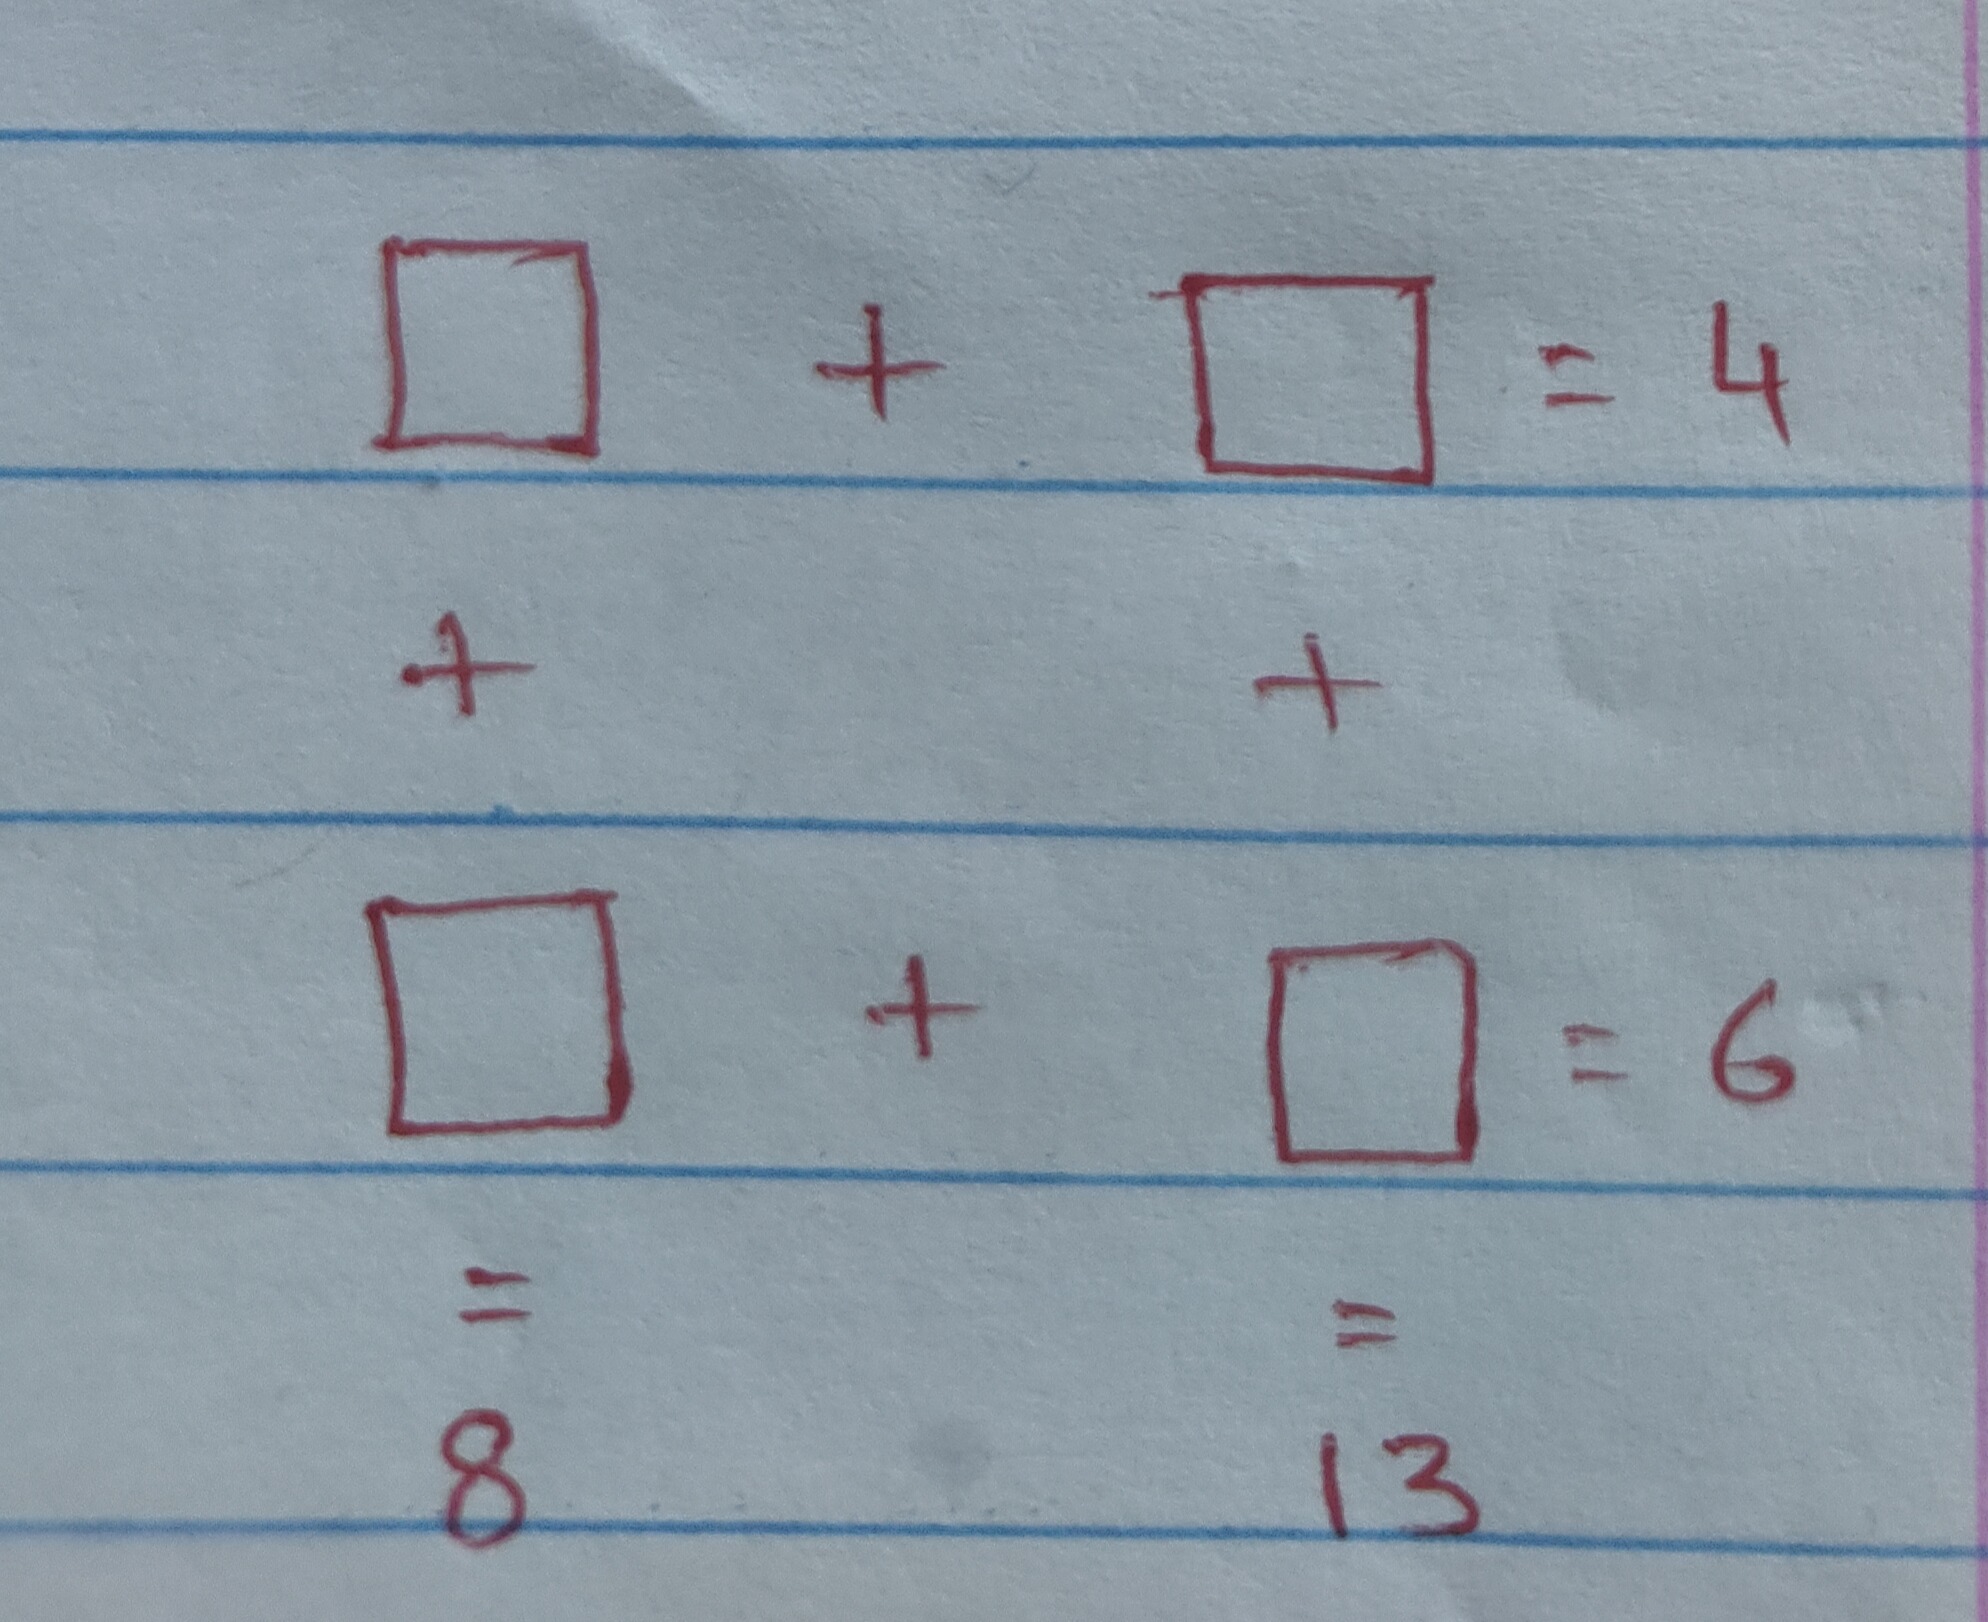 □ + □ = 4
+ +
□ + □ = 6
= =
8 13